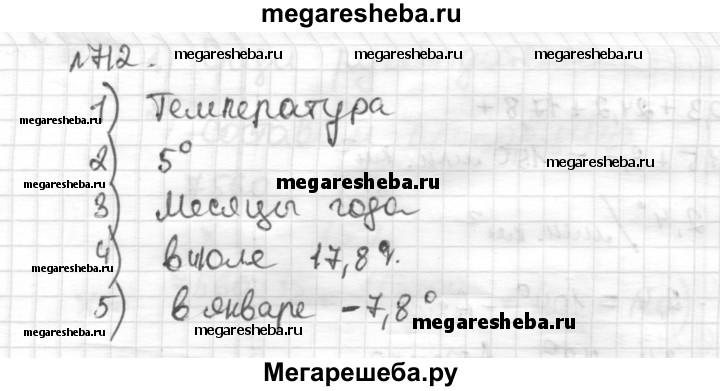 megaresheba.ru
№712.
megaresheba.ru megaresheba.ru
1) Температура
megaresheba.ru
2) 5°
megaresheba.ru
megaresheba.ru megaresheba.ru
3) Месяцы года
4) в июле 17,8°.
megaresheba.ru
5) в январе -7,8°
megaresheba.ru megaresheba.ru
Мегарешеба.ру